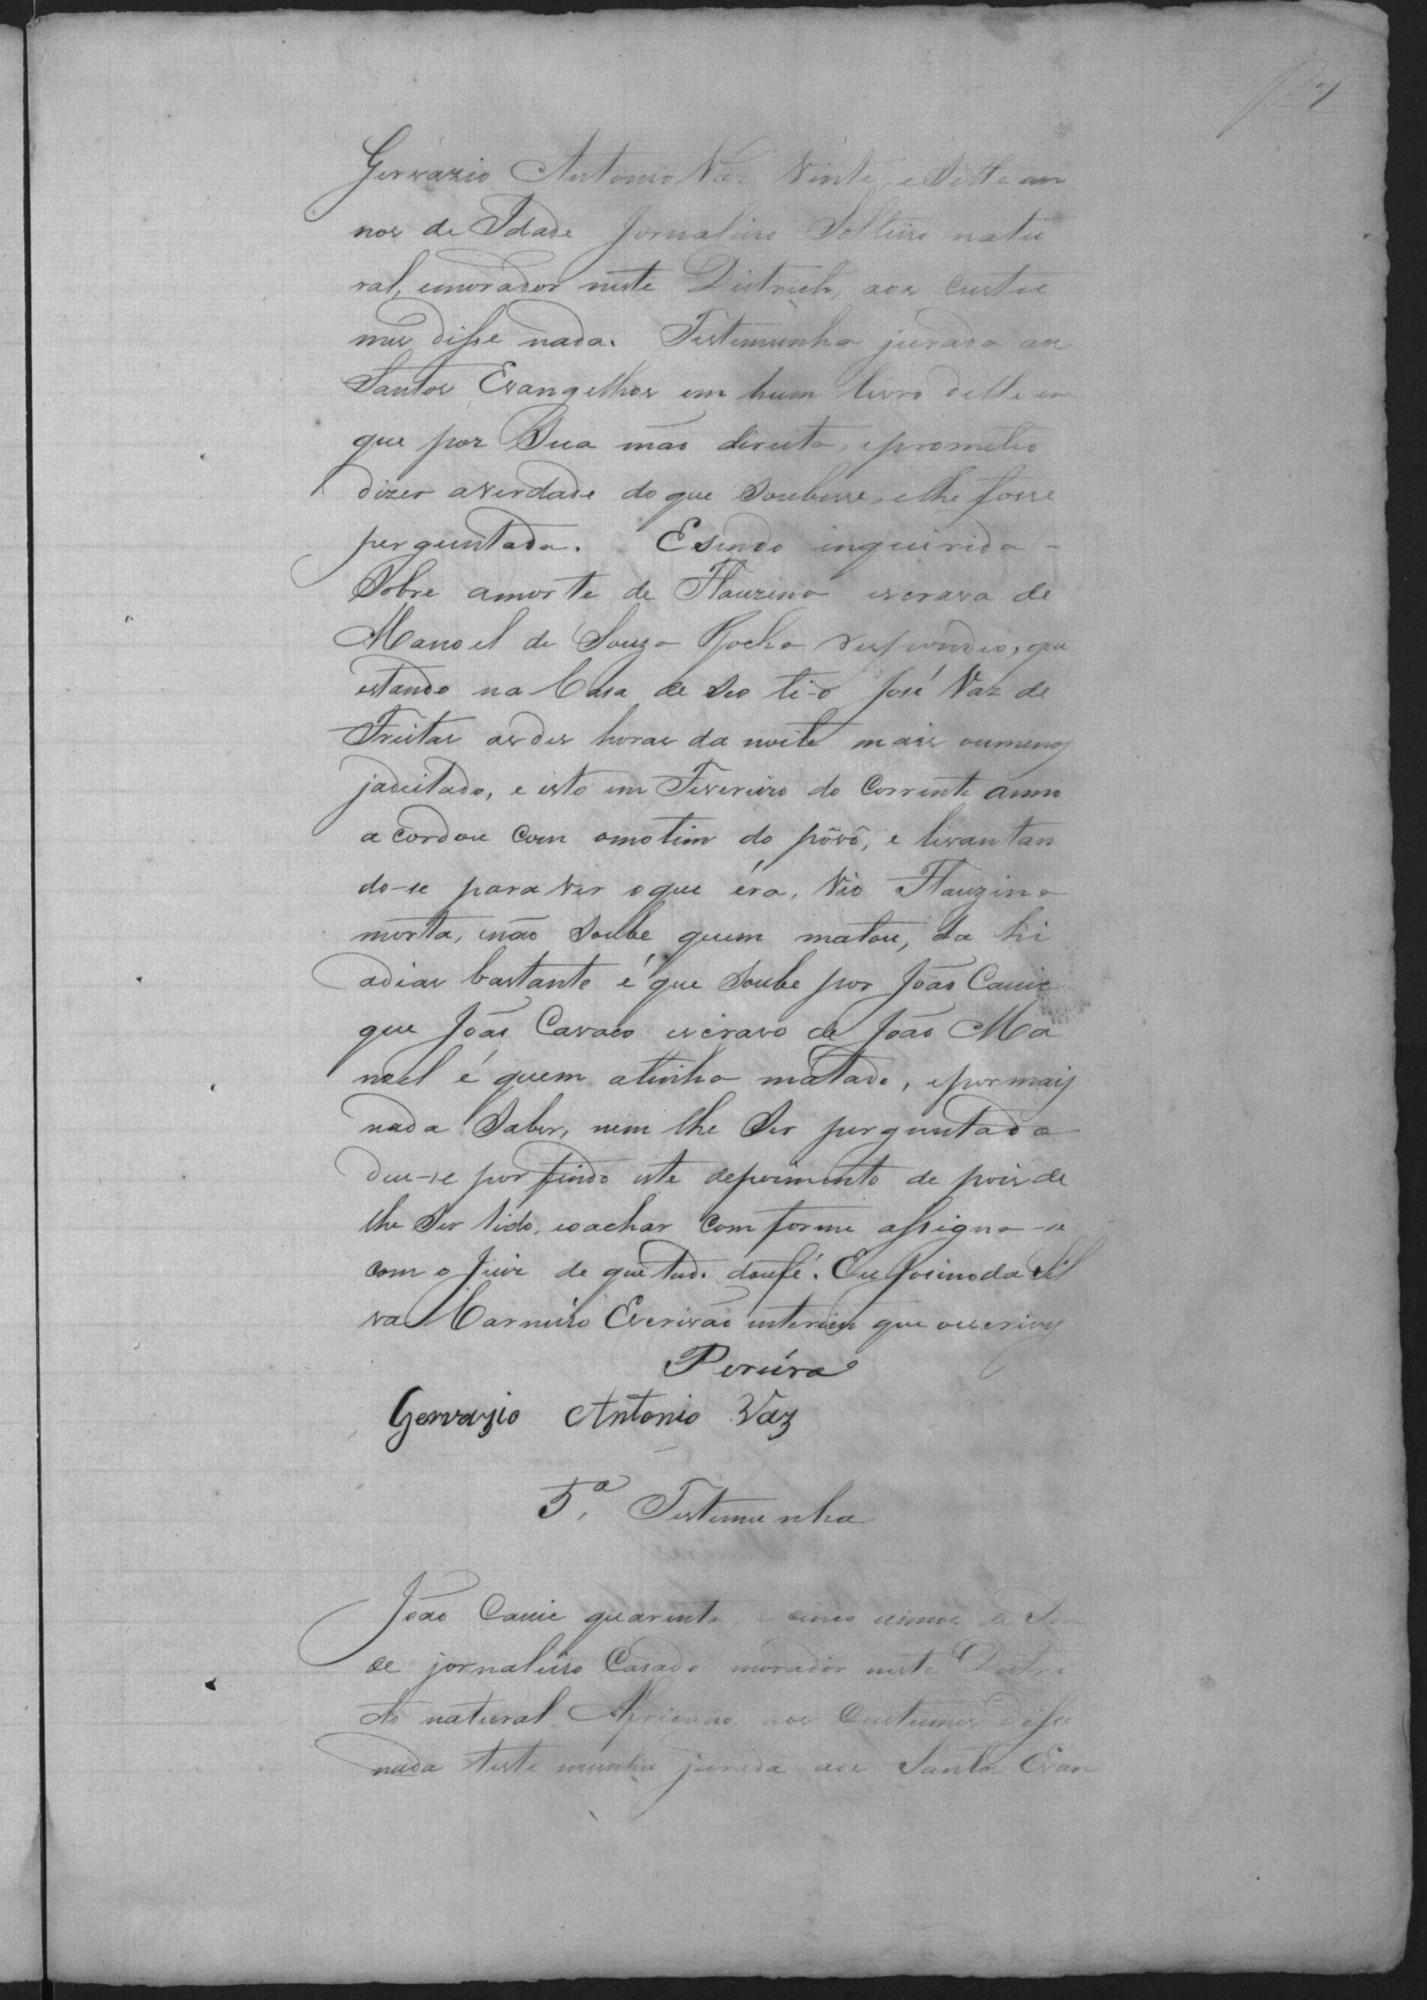 Gervazio Antonio Vaz Vinte, e Sette an
nos de Idade Jornaleiro Solteiro natu
ral, emorador neste Districto, aos custu
mes disse nada. Testemunha jurada aos
Santos Evangelhos em hum livro delle em
que poz Sua mão direita, eprometeo
dizer averdade do que Soubesse, elhe fosse
perguntada. Esendo inquirida -
Sobre amorte de Flauzina escrava de
Manoel de Souza Rocha respondeo, que
estando na Casa de Seo tio José Vaz de
Freitas asdes horas da noite mais oumenos
jadeitado, e isto em Fevereiro do Corrente anno
acordou Com omotim do pôvô, e levantan
do-se para ver oque éra, Vio Flauzina
morta, enão Soube quem matou, da hi
adias bastante é que Soube por João Cauie
que João Cavaco escravo de João Ma
noel é quem atinha matado, epormais
nada Saber, nem lhe Ser perguntado
deu-se porfindo este depoimento de pois de
lhe Ser lido, eoachar Comforme assigna-se
com o Juiz de que tudo doufé. Eu Josino da Sil
va Carneiro Escrivão interino que oescrivy
Pereira
Gervazio Antonio Vaz
5ª. Testemunha
João Cauie quarenta, e cinco annos de Ida
de jornaleiro Casado morador neste Distri
cto natural Africano aos Custumes disse
nada teste munha jurada aos Santos Evan